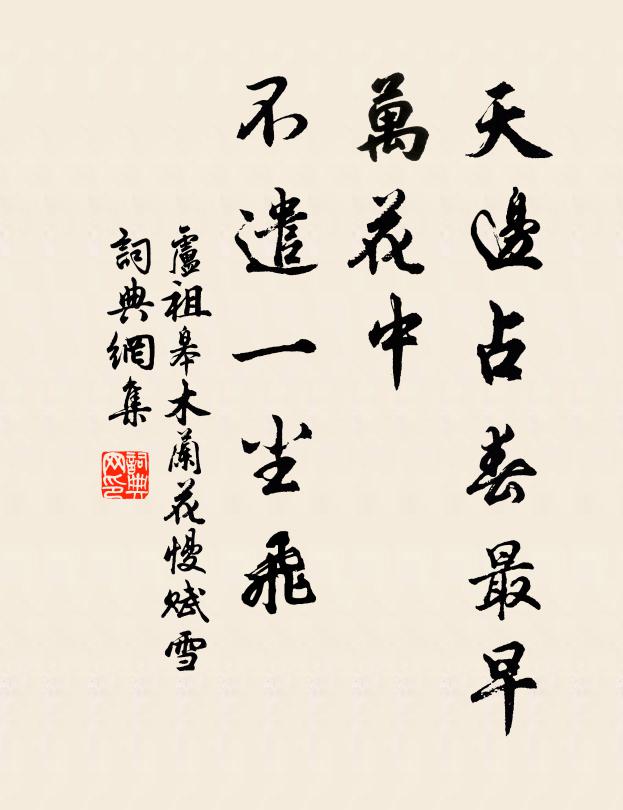 天邊占春最早
萬花中
不遣一尘飛
盧祖皋木蘭花慢賦雪
詞典網集
詞典网印